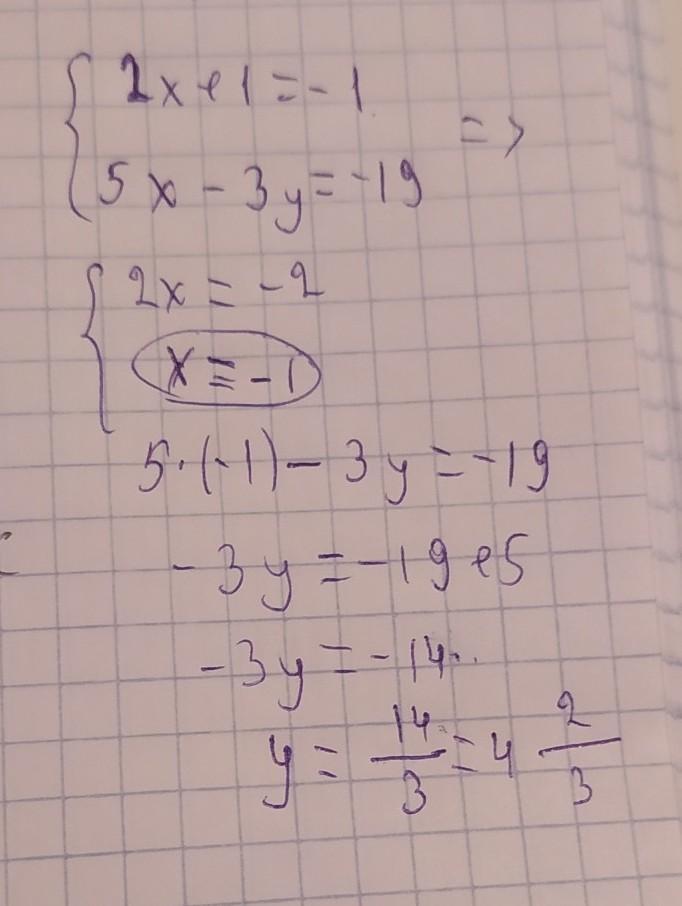 2x+1=-1
5x-3y=-19 =>
2x=-2
x=-1
5·(-1)-3y=-19
-3y=-19+5
-3y=-14
y=14/3=4 2/3